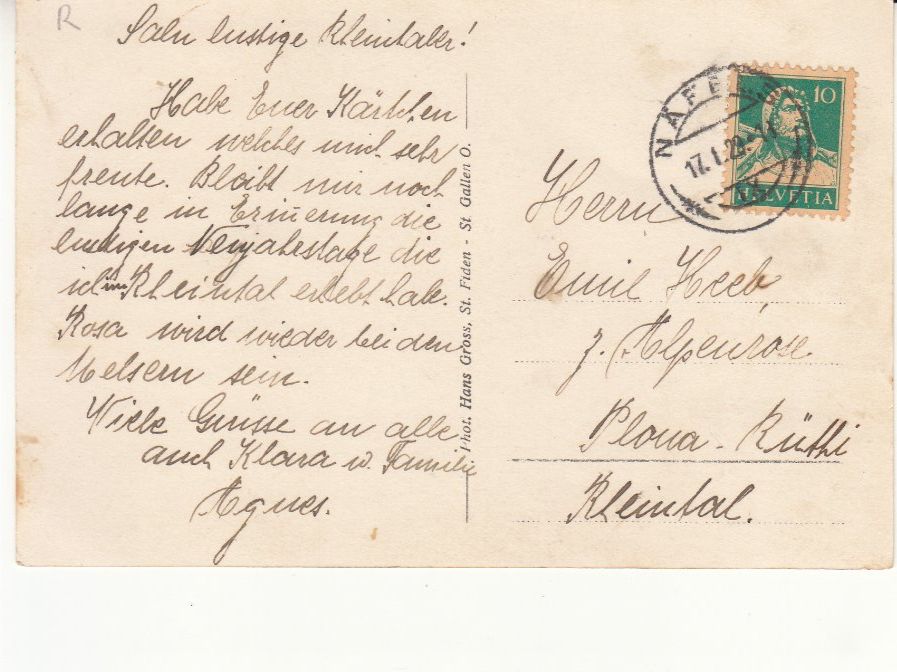 R
Saln lustige Rheintaler!
Habe Euer Kärtchen
erhalten welches mich sehr
freute. Bleibt mir noch
lange in Erinnerung die
lustigen Neujahrstage die
ich im Rheintal erlebt habe.
Rosa wird wieder bei den
Melsern sein.
Viele Grüsse an alle
auch Klara u. Familie
Agnes.
Phot. Hans Gross, St. Fiden - St Gallen O.
NÄFELS
17.I.29.
10
HELVETIA
Herrn
Emil Heeb,
z. Alpenrose
Plona-Rüthi
Rheintal.